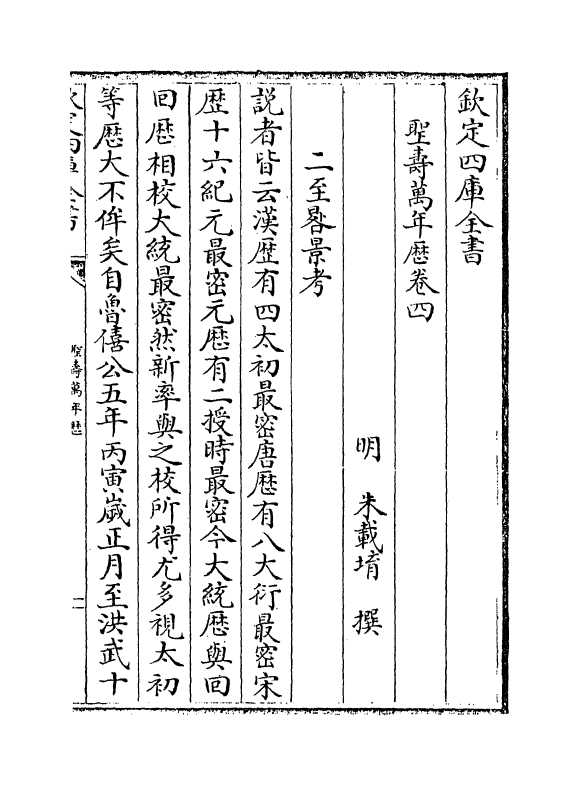 欽定四庫全書
聖壽萬年厯卷四
明 朱載堉 撰
二至晷景考
説者皆云漢厯有四太初最密唐厯有八大衍最密宋
厯十六紀元最密元厯有二授時最密今大統厯與回
回厯相校大統最密然新率與之校所得尤多視太初
等厯大不侔矣自魯僖公五年丙寅歲正月至洪武十
欽定四庫全書
聖壽萬年厯